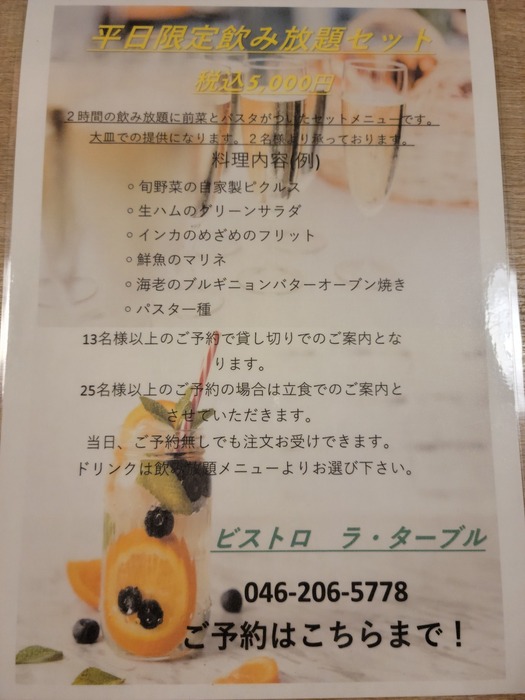 平日限定飲み放題セット
税込5,000円
2時間の飲み放題に前菜とパスタがついたセットメニューです。
大皿での提供になります。2名様より承っております。
料理内容(例)
○旬野菜の自家製ピクルス
○生ハムのグリーンサラダ
○インカのめざめのフリット
○鮮魚のマリネ
○海老のブルギニョンバターオーブン焼き
○パスタ一種
13名様以上のご予約で貸し切りでのご案内とな
ります。
25名様以上のご予約の場合は立食でのご案内と
させていただきます。
当日、ご予約無しでも注文お受けできます。
ドリンクは飲み放題メニューよりお選び下さい。
ビストロ　ラ・ターブル
046-206-5778
ご予約はこちらまで！